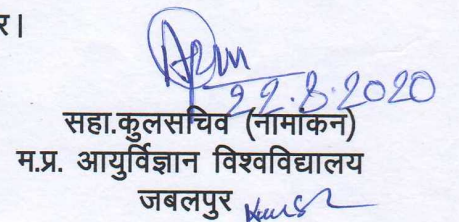 र।
22.8.2020
सहा.कुलसचिव (नामांकन)
म.प्र. आयुर्विज्ञान विश्वविद्यालय
जबलपुर